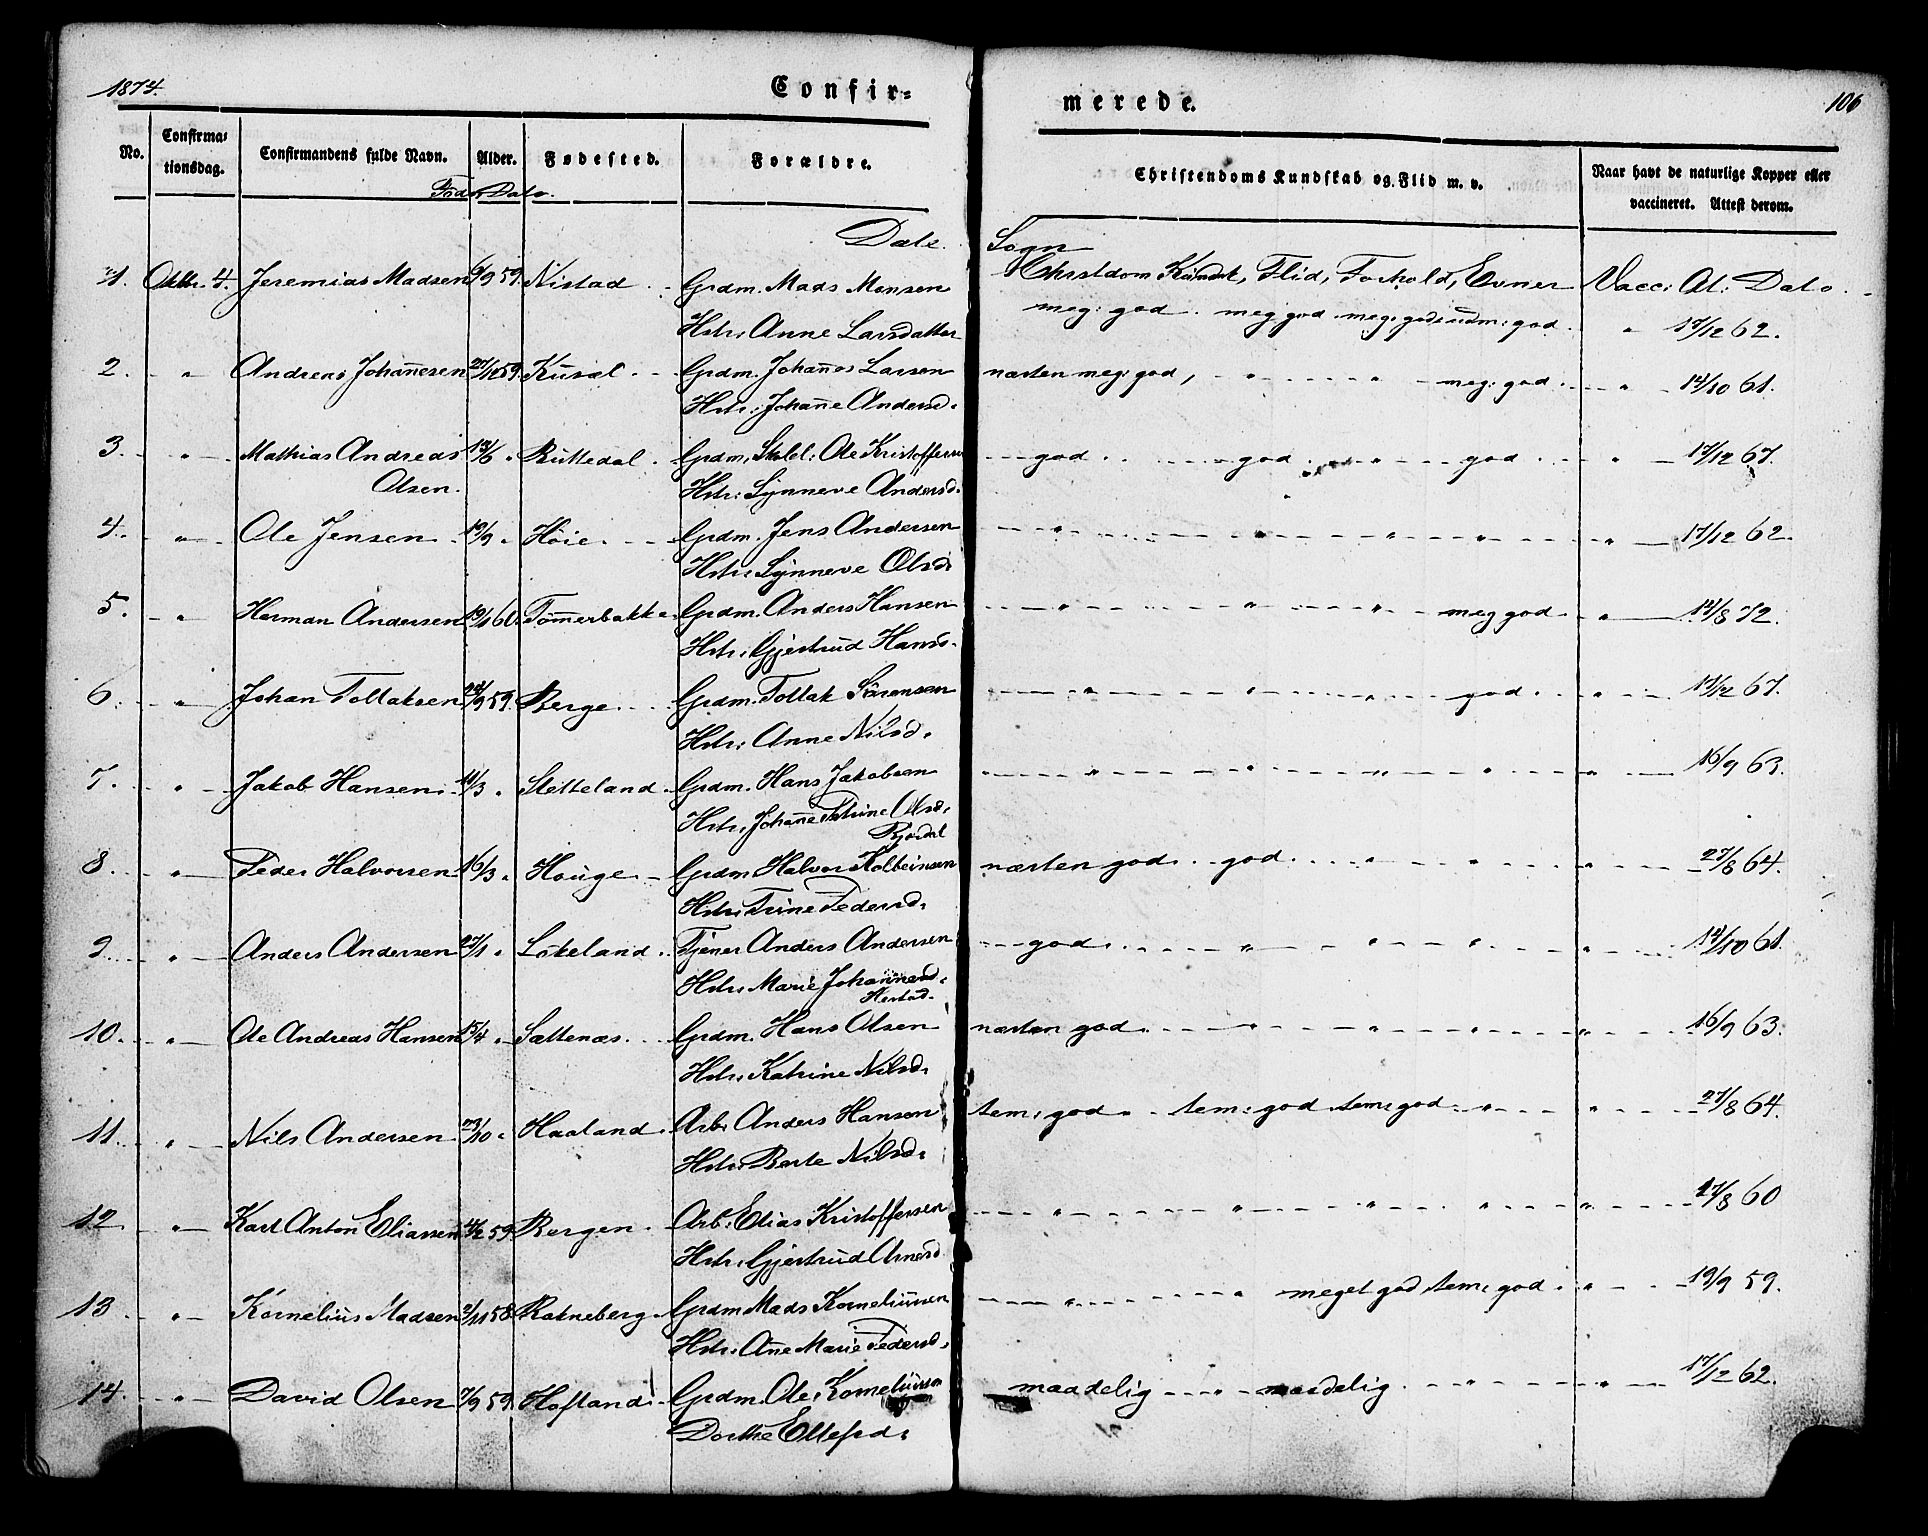 1874.
Confir=
merede.
106
No.
Confirma=
tionsdag.
Confirmandens fulde Navn.
Alder.
Fødested.
Forældre.
Christendoms Kundskab og Flid m. v.
Naar havt de naturlige Kopper eller
vaccineret. Attest derom.
Føds Dato.
Dale Sogn
Christdom Kundsk, Flid, Forhold, Evner Vacc: At: Dato
1. Oktbr. 4. Jeremias Madsen 6/9 59. Nistad Grdm. Mads Monsen meg: god. meg god meg: god udm: god. " 17/12 62.
Hstr: Anne Larsdatter
2. " Andreas Johannesen 27/12 59. Kusal Grdm. Johannes Larsen næsten meg: god, " " meg: god. " 14/10 61.
Hstr: Johanne Andersd.
3. " Mathias Andreas 12/6 " Ruttedal Grdm. Skoll: Ole Kristoffersen god. god. " god. " 17/12 67.
Olsen. Hstr: Synneve Andersd.
4. " Ole Jensen 19/9 " Høie Grdm. Jens Andersen " " " " " 17/12 62.
Hstr: Synneve Olsd.
5. " Herman Andersen 19/1 60. Tømmerbakke Grdm. Anders Hansen " " " meg god " 12/8 72.
Hstr: Gjertrud Hansd.
6. " Johan Tollaksen 22/9 59. Berge Grdm. Tollak Sørensen " " " god. " 17/12 67.
Hstr: Anne Nilsd.
7. " Jakob Hansen 11/3 " Stetteland Grdm. Hans Jakobsen " " " " " 16/9 63.
Hstr: Johanne Katrine Olsd.
8. " Peder Halvorsen 16/3 " Houge Grdm. Halvor Kolbeinsen næsten god. god. " " " 27/8 64.
Hstr: Trine Pedersd.
9. " Anders Andersen 27/1 " Løkeland Tjener Anders Andersen god. " " " " 14/10 61.
Hstr: Marie Johannesd.
10. " Ole Andreas Hansen 15/4 " Sættenæs Grdm. Hans Olsen næsten god. " " " " 16/9 63.
Hstr: Katrine Nilsd.
11. " Nils Andersen 23/10 " Haaland Arb: Anders Hansen tem: god. tem: god tem: god " " 27/8 64.
Hstr: Berte Nilsd.
12. " Karl Anton Eliassen 4/2 59. Bergen Arb: Elias Kristoffersen " " " " " 27/8 60
Hstr: Gjertrud Arnesd
13. " Kornelius Madsen 2/11 58. Rakneberg Grdm Mads Korneliussen " " meget god tem: god. " 19/9 59.
Hstr: Ane Marie Pedersd.
14. " David Olsen 7/9 59. Hofland Grdm. Ole Korneliussen maadelig " maadelig " " 17/12 62.
Dorthe Ellefsd.